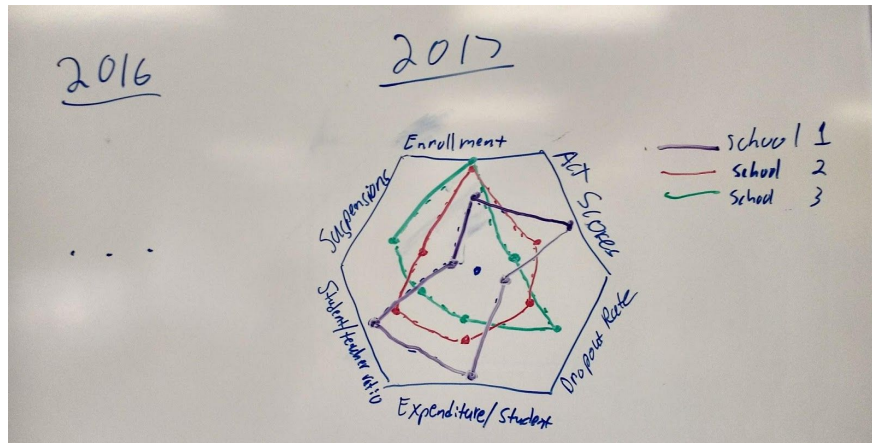 2016
2017
Enrollment
Act Scores
Dropout Rate
Expenditure/Student
Student/teacher ratio
Suspensions
School 1
School 2
School 3
...